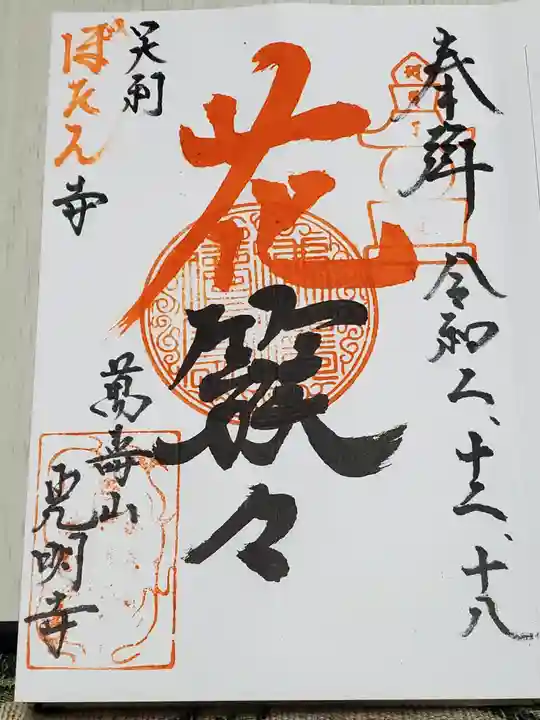 奉拝
令和二、十二、十八
花簇々
足利
ぼたん寺
萬壽山
見明寺